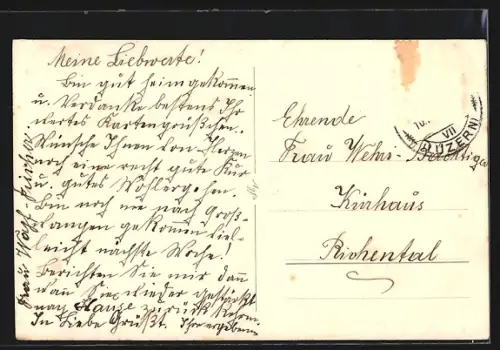 Meine Liebwerte!
Bin gut heimgekommen
u. Verdanke bestens Ihr
wertes Kartengrüßchen.
Wünsche Ihnen von Herzen
noch eine recht gut Kur
u. gutes Wohlergehen.
Bin noch nie nach Groß-
langen gekommen Viel-
leicht nächste Woche!
Berichten Sie mir dann
wann Sie wieder gestärkt
nach Hause zurück kehren.
In Liebe Grüßt. Ihre ergebene
Frau Wolf
Ehrende
Frau Wehr-
Kurhaus
Richental
10. VII
LUZERN